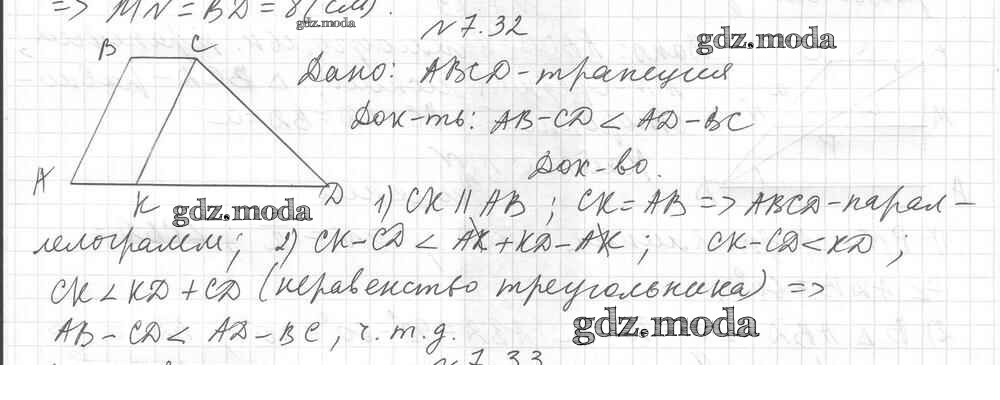 => MN = BD = 8 (см).
gdz.moda
N 7.32
gdz.moda
B C
Дано: ABCD - трапеция
Док-ть: AB - CD < AD - BC
Док-во.
A K D
gdz.moda
1) CK || AB ; CK = AB => ABCD - парал-
лелограмм; 2) CK - CD < AK + KD - AK ; CK - CD < KD ;
CK < KD + CD (неравенство треугольника) =>
AB - CD < AD - BC, ч.т.д.
gdz.moda
N 7.33